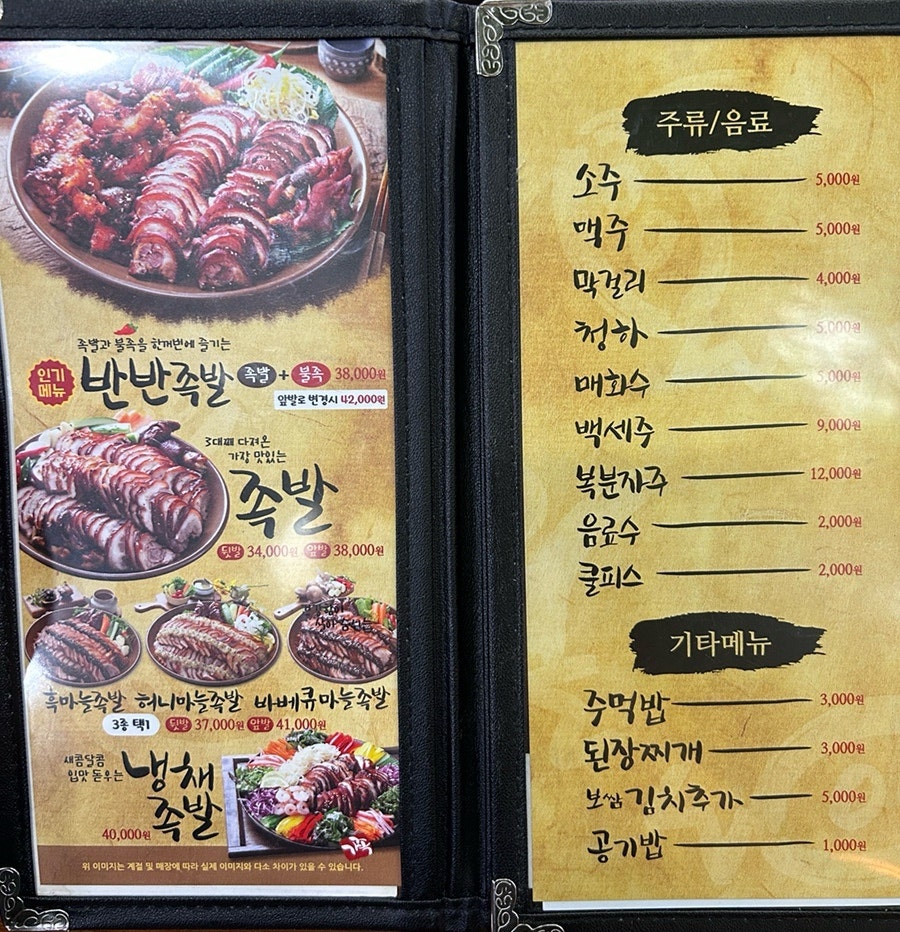 족발과 불족을 한꺼번에 즐기는
인기
메뉴
반반족발 족발 + 불족 38,000원
앞발로 변경시 42,000원
3대째 다져온
가장 맛있는
족발
뒷발 34,000원 앞발 38,000원
흑마늘족발 허니마늘족발 바베큐마늘족발
3종 택1 뒷발 37,000원 앞발 41,000원
새콤달콤
입맛 돋우는
냉채
족발
40,000원
위 이미지는 계절 및 매장에 따라 실제 이미지와 다소 차이가 있을 수 있습니다.
주류/음료
소주 5,000원
맥주 5,000원
막걸리 4,000원
청하 5,000원
매화수 5,000원
백세주 9,000원
복분자주 12,000원
음료수 2,000원
쿨피스 2,000원
기타메뉴
주먹밥 3,000원
된장찌개 3,000원
보쌈김치추가 5,000원
공기밥 1,000원